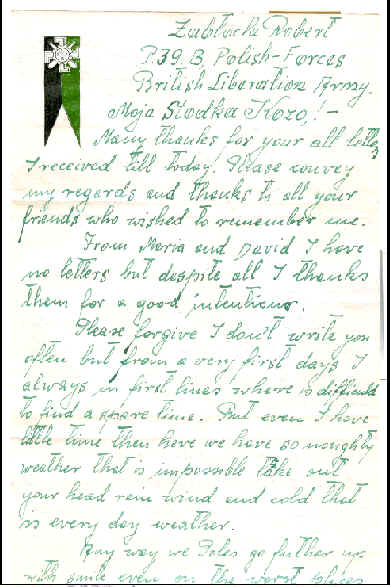 Zabłocki Robert
P.39.B, Polish-Forces
British Liberation Army.
Moja Słodka Kozo,! -
Many thanks for your all letters
I received till today. Please convey
my regards and thanks to all your
friends who wished to remember me.
From Maria and David I have
no letters but despite all I thanks
them for a good intentions.
Please forgive I don't write you
often but from a very first days I
always in first lines where is difficult
to find a spare time. But even I have
little time then here we have so noughty
weather that is impossible take out
your head rain wind and cold that
is every day weather.
Any way we Poles go further up
with smile even on the worst